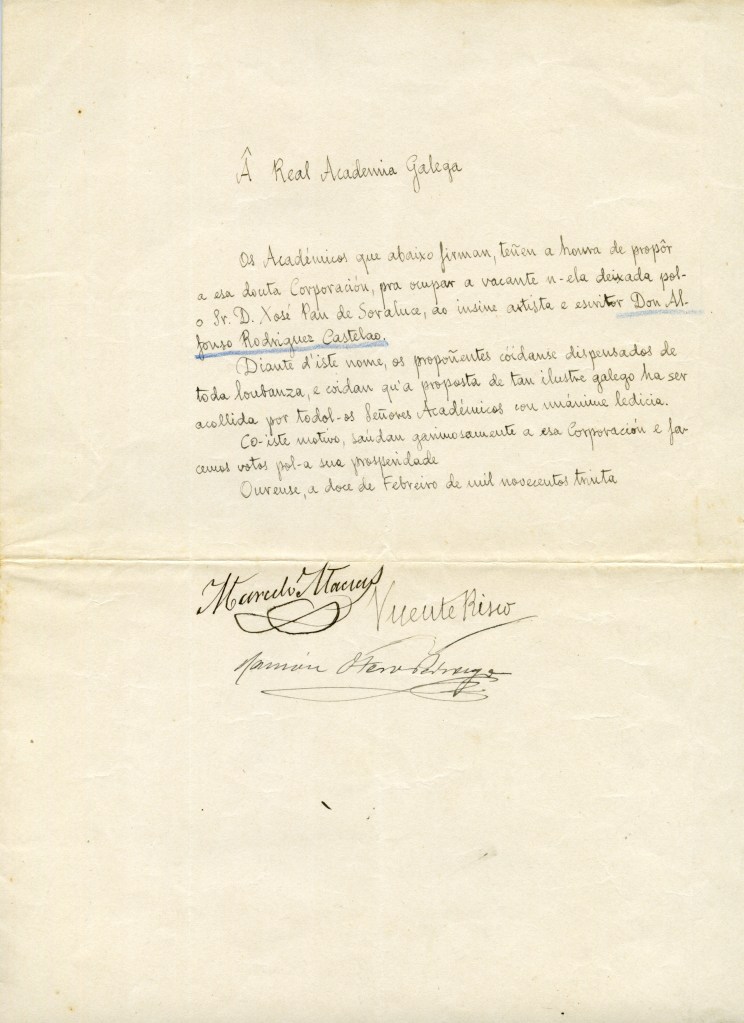 Â Real Academia Galega
Os Académicos que abaixo firman, teñen a honra de propôr
a esa douta Corporación, pra ocupar a vacante n-ela deixada pol-
o Sr. D. Xosé Pan de Soraluce, ao insine artista e escritor Don Al-
fonso Rodriguez Castelao.
Diante d'iste nome, os propoñentes cóidanse dispensados de
toda loubanza, e cóidan qu'a proposta de tan ilustre galego ha ser
acollida por todol-os Señores Académicos con unánime ledicia.
Co-iste motivo, saúdan garimosamente a esa Corporación e fa-
cemos votos pol-a sua prosperidade
Ourense, a doce de Febreiro de mil novecentos trinta
Marcelo Macías
Vicente Risco
Ramón Otero Pedrayo